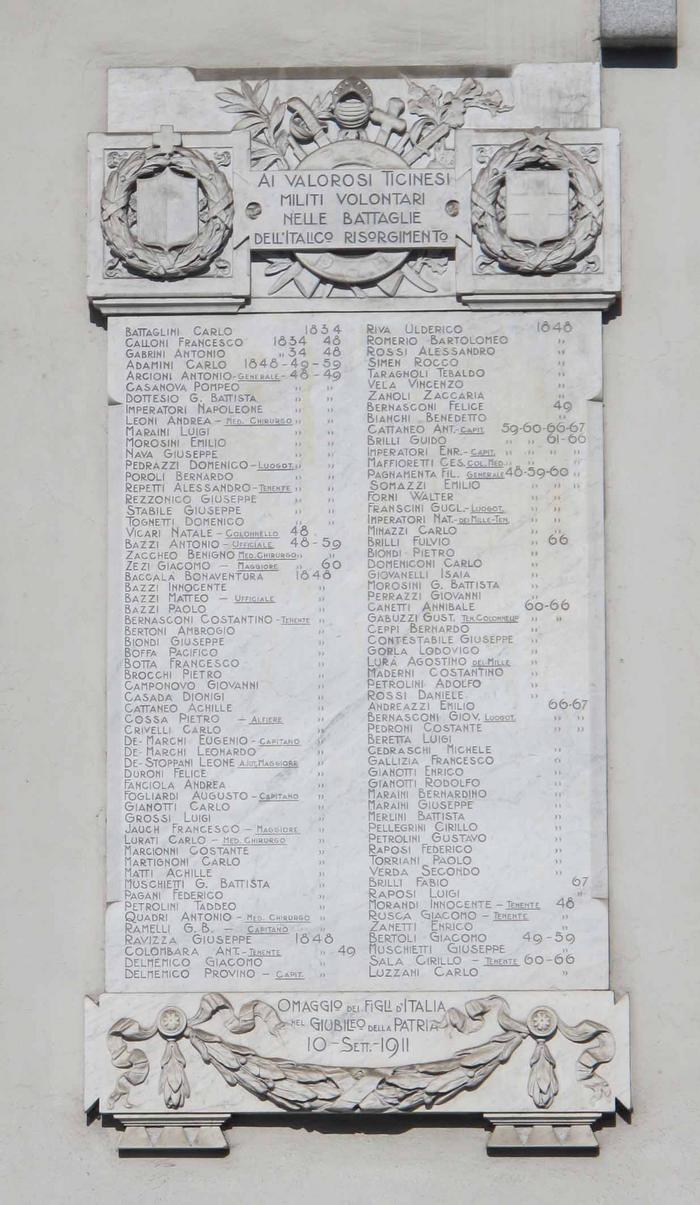 AI VALOROSI TICINESI
MILITI VOLONTARI
NELLE BATTAGLIE
DELL'ITALICO RISORGIMENTO
BATTAGLINI CARLO 1834
CALLONI FRANCESCO 1834 48
GABRINI ANTONIO " 34 48
ADAMINI CARLO 1848-49-59
ARCIONI ANTONIO-GENERALE-48-49
CASANOVA POMPEO " "
DOTTESIO G. BATTISTA " "
IMPERATORI NAPOLEONE " "
LEONI ANDREA-MED. CHIRURGO " "
MARAINI LUIGI " "
MOROSINI EMILIO " "
NAVA GIUSEPPE " "
PEDRAZZI DOMENICO-LUOGOT. " "
POROLI BERNARDO " "
REPETTI ALESSANDRO-TENENTE " "
REZZONICO GIUSEPPE " "
STABILE GIUSEPPE " "
TOGNETTI DOMENICO " "
VICARI NATALE-COLONNELLO 48
BAZZI ANTONIO-UFFICIALE 48-59
ZACCHEO BENIGNO MED. CHIRURGO " "
ZEZI GIACOMO - MAGGIORE " 60
BACCALA BONAVENTURA 1848
BAZZI INNOCENTE "
BAZZI MATTEO - UFFICIALE "
BAZZI PAOLO "
BERNASCONI COSTANTINO-TENENTE "
BERTONI AMBROGIO "
BIONDI GIUSEPPE "
BOFFA PACIFICO "
BOTTA FRANCESCO "
BROCCHI PIETRO "
CAMPONOVO GIOVANNI "
CASADA DIONIGI "
CATTANEO ACHILLE "
COSSA PIETRO - ALFIERE "
CRIVELLI CARLO "
DE-MARCHI EUGENIO-CAPITANO "
DE-MARCHI LEONARDO "
DE-STOPPANI LEONE AJUT. MAGGIORE "
DURONI FELICE "
FANCIOLA ANDREA "
FOGLIARDI AUGUSTO-CAPITANO "
GIANOTTI CARLO "
GROSSI LUIGI "
JAUCH FRANCESCO - MAGGIORE "
LURATI CARLO - MED. CHIRURGO "
MARCIONNI COSTANTE "
MARTIGNONI CARLO "
MATTI ACHILLE "
MUSCHIETTI G. BATTISTA "
PAGANI FEDERICO "
PETROLINI TADDEO "
QUADRI ANTONIO - MED. CHIRURGO "
RAMELLI G.B. - CAPITANO "
RAVIZZA GIUSEPPE 1848
COLOMBARA ANT.-TENENTE " 49
DELMENICO GIACOMO "
DELMENICO PROVINO - CAPIT. "
RIVA ULDERICO 1848
ROMERIO BARTOLOMEO "
ROSSI ALESSANDRO "
SIMEN ROCCO "
TARAGNOLI TEBALDO "
VELA VINCENZO "
ZANOLI ZACCARIA "
BERNASCONI FELICE 49
BIANCHI BENEDETTO "
CATTANEO ANT.-CAPIT. 59-60-66-67
BRILLI GUIDO " " 61-66
IMPERATORI ENR.-CAPIT. " "
MAFFIORETTI CES. COL. MED. " "
PAGNAMENTA FIL. GENERALE 48-59-60 "
SOMAZZI EMILIO " "
FORNI WALTER " "
FRANSCINI GUGL.-LUOGOT. " "
IMPERATORI NAT.-DEI MILLE-TEN. " "
MINAZZI CARLO " "
BRILLI FULVIO " 66
BIONDI PIETRO "
DOMENICONI CARLO "
GIOVANELLI ISAIA "
MOROSINI G. BATTISTA "
PERRAZZI GIOVANNI "
CANETTI ANNIBALE 60-66
GABUZZI GUST. TEN. COLONNELLO " "
CEPPI BERNARDO "
CONTESTABILE GIUSEPPE "
GORLA LODOVICO "
LURÀ AGOSTINO DEI MILLE "
MADERNI COSTANTINO "
PETROLINI ADOLFO "
ROSSI DANIELE "
ANDREAZZI EMILIO 66-67
BERNASCONI GIOV. LUOGOT. " "
PEDRONI COSTANTE " "
BERETTA LUIGI "
CEDRASCHI MICHELE "
GALLIZIA FRANCESCO "
GIANOTTI ENRICO "
GIANOTTI RODOLFO "
MARAINI BERNARDINO "
MARAINI GIUSEPPE "
MERLINI BATTISTA "
PELLEGRINI CIRILLO "
PETROLINI GUSTAVO "
RAPOSI FEDERICO "
TORRIANI PAOLO "
VERDA SECONDO "
BRILLI FABIO 67
RAPOSI LUIGI "
MORANDI INNOCENTE - TENENTE 48
RUSCA GIACOMO - TENENTE "
ZANETTI ENRICO "
BERTOLI GIACOMO 49-59
MUSCHIETTI GIUSEPPE "
SALA CIRILLO - TENENTE 60-66
LUZZANI CARLO "
OMAGGIO DEI FIGLI D'ITALIA
NEL GIUBILEO DELLA PATRIA
10-SETT.-1911